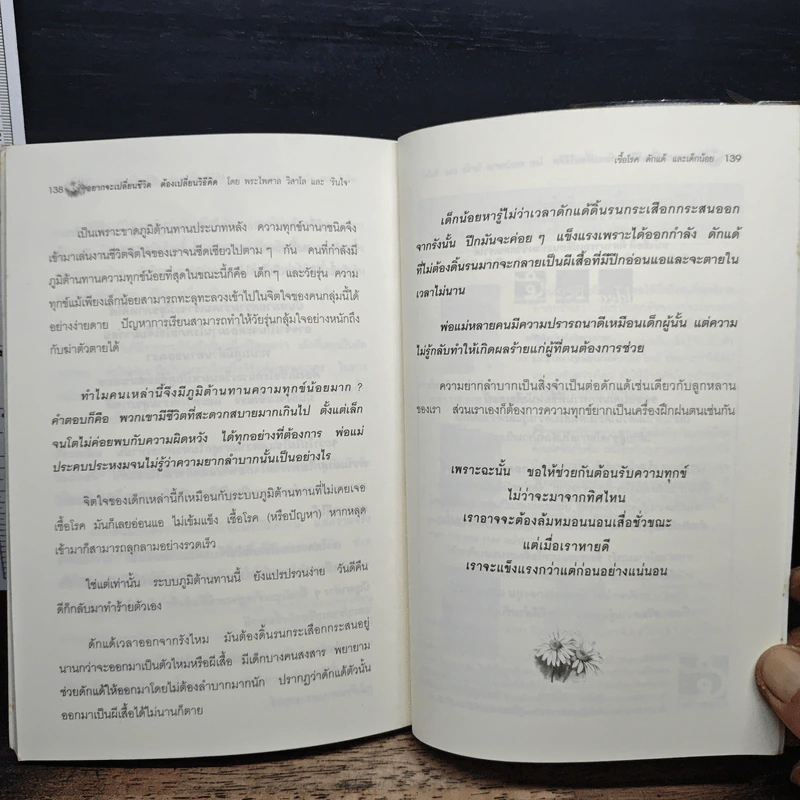 138 อยากจะเปลี่ยนชีวิต ต้องเปลี่ยนวิธีคิด โดย พระไพศาล วิสาโล และ 'รินใจ'
เป็นเพราะขาดภูมิต้านทานประเภทหลัง ความทุกข์นานาชนิดจึง
เข้ามาเล่นงานชีวิตจิตใจของเราจนซีดเซียวไปตาม ๆ กัน คนที่กำลังมี
ภูมิต้านทานความทุกข์น้อยที่สุดในขณะนี้ก็คือ เด็ก ๆ และวัยรุ่น ความ
ทุกข์แม้เพียงเล็กน้อยสามารถทะลุทะลวงเข้าไปในจิตใจของคนกลุ่มนี้ได้
อย่างง่ายดาย ปัญหาการเรียนสามารถทำให้วัยรุ่นกลุ้มใจอย่างหนักถึง
กับฆ่าตัวตายได้
ทำไมคนเหล่านี้จึงมีภูมิต้านทานความทุกข์น้อยมาก ?
คำตอบก็คือ พวกเขามีชีวิตที่สะดวกสบายมากเกินไป ตั้งแต่เล็ก
จนโตไม่ค่อยพบกับความผิดหวัง ได้ทุกอย่างที่ต้องการ พ่อแม่
ประคบประหงมจนไม่รู้ว่าความยากลำบากนั้นเป็นอย่างไร
จิตใจของเด็กเหล่านี้ก็เหมือนกับระบบภูมิต้านทานที่ไม่เคยเจอ
เชื้อโรค มันก็เลยอ่อนแอ ไม่เข้มแข็ง เชื้อโรค (หรือปัญหา) หากหลุด
เข้ามาก็สามารถลุกลามอย่างรวดเร็ว
ใช่แต่เท่านั้น ระบบภูมิต้านทานนี้ ยังแปรปรวนง่าย วันดีคืน
ดีก็กลับมาทำร้ายตัวเอง
ดักแด้เวลาออกจากรังไหม มันต้องดิ้นรนกระเสือกกระสนอยู่
นานกว่าจะออกมาเป็นตัวไหมหรือผีเสื้อ มีเด็กบางคนสงสาร พยายาม
ช่วยดักแด้ให้ออกมาโดยไม่ต้องลำบากมากนัก ปรากฏว่าดักแด้ตัวนั้น
ออกมาเป็นผีเสื้อได้ไม่นานก็ตาย
เชื้อโรค ดักแด้ และเด็กน้อย 139
เด็กน้อยหารู้ไม่ว่าเวลาดักแด้ดิ้นรนกระเสือกกระสนออก
จากรังนั้น ปีกมันจะค่อย ๆ แข็งแรงเพราะได้ออกกำลัง ดักแด้
ที่ไม่ต้องดิ้นรนมากจะกลายเป็นผีเสื้อที่มีปีกอ่อนแอและจะตายใน
เวลาไม่นาน
พ่อแม่หลายคนมีความปรารถนาดีเหมือนเด็กผู้นั้น แต่ความ
ไม่รู้กลับทำให้เกิดผลร้ายแก่ผู้ที่ตนต้องการช่วย
ความยากลำบากเป็นสิ่งจำเป็นต่อดักแด้เช่นเดียวกับลูกหลาน
ของเรา ส่วนเราเองก็ต้องการความทุกข์ยากเป็นเครื่องฝึกฝนตนเช่นกัน
เพราะฉะนั้น ขอให้ช่วยกันต้อนรับความทุกข์
ไม่ว่าจะมาจากทิศไหน
เราอาจจะต้องล้มหมอนนอนเสื่อชั่วขณะ
แต่เมื่อเราหายดี
เราจะแข็งแรงกว่าแต่ก่อนอย่างแน่นอน